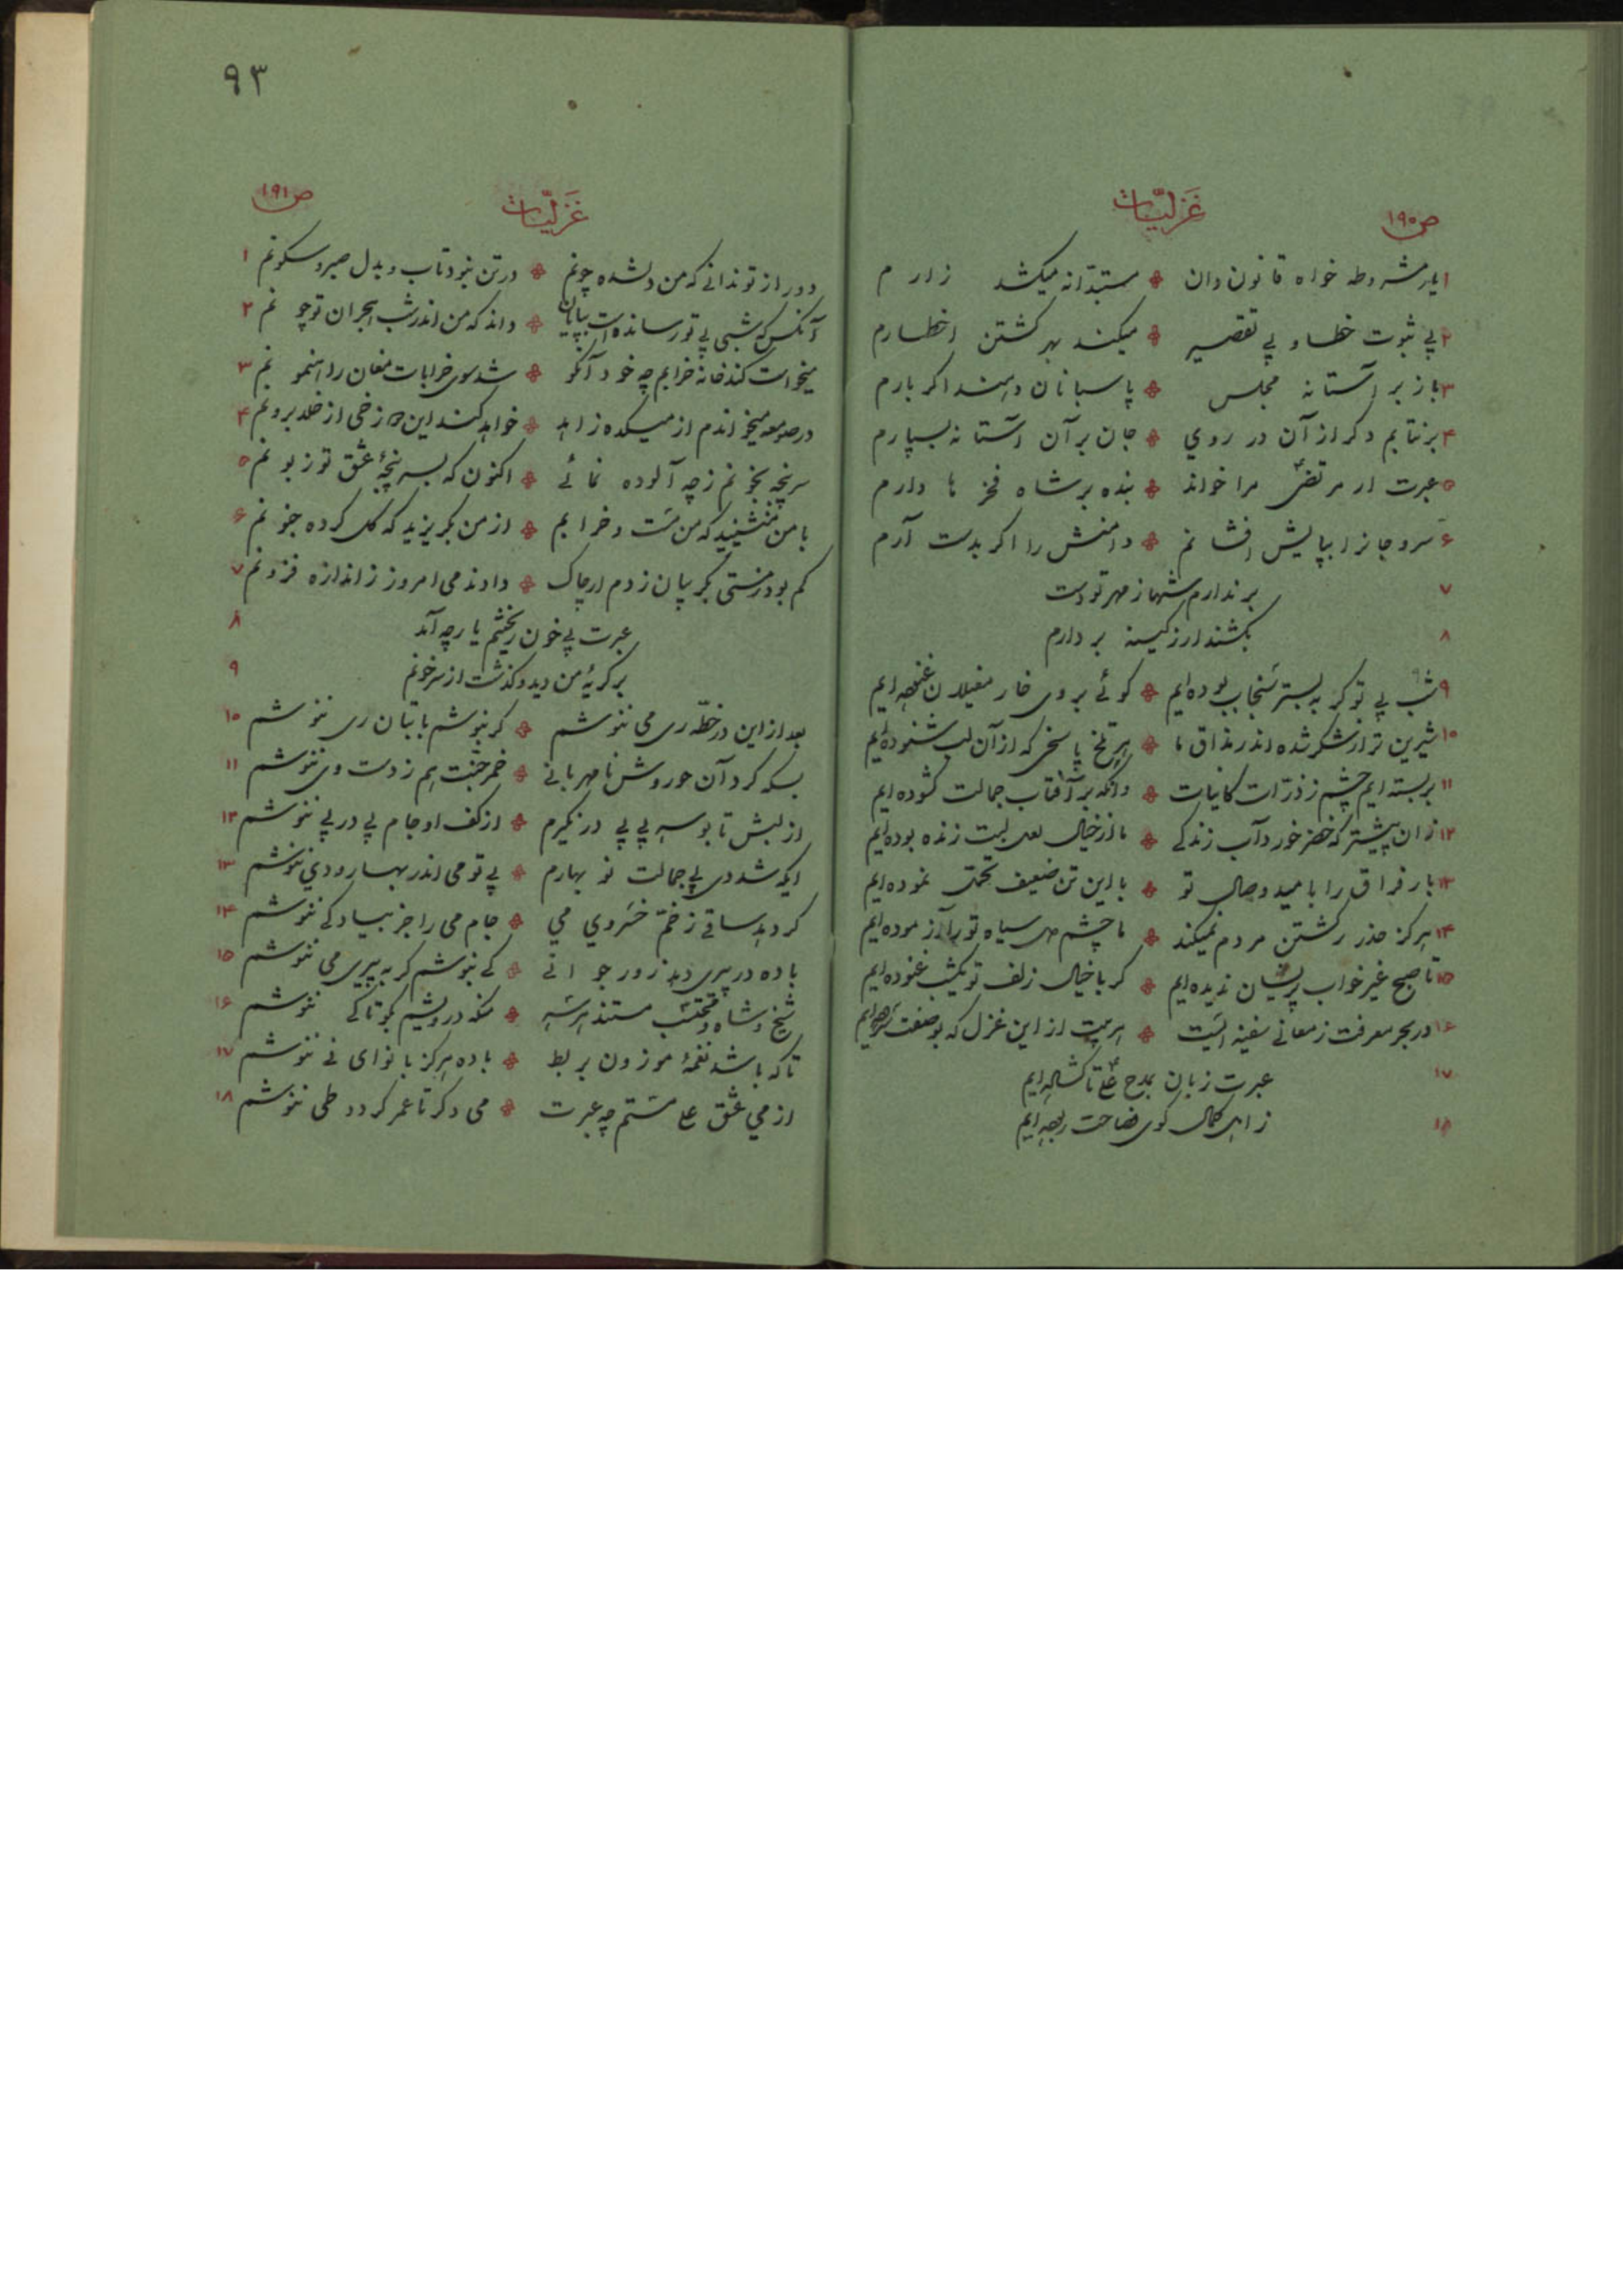 ص۱۹۰
غَزلیّات
۱ یار مشروطه خواه قانون دان ❖ مستبدّانه میکشد زارم
۲ بی ثبوت خطا و بی تقصیر ❖ میکند بهر کشتن اخطارم
۳ باز بر آستانه مجلس ❖ پاسبانان دهند اکر بارم
۴ برنتابم دکر از آن در روي ❖ جان بر آن آستانه بسپارم
۵ عبرت ار مرتضیٰ مرا خواند ❖ بنده بر شاه فخرها دارم
۶ سر و جانرا بپایش افشانم ❖ دامنش را اکر بدست آرم
۷ برندارم شها ز مهر تو دست
۸ بکشند ار ز کینه بر دارم
۹ شب بی تو کر به بستر سنجاب بوده‌ایم ❖ کوئی بروی خار مغیلان غنوده‌ایم
۱۰ شیرین تر از شکر شده اندر مذاق ما ❖ هر تلخ پاسخی که از آن لب شنوده‌ایم
۱۱ بربسته‌ایم چشم ز ذرّات کاینات ❖ وانکه بر آفتاب جمالت کشوده‌ایم
۱۲ زان پیشتر که خضر خورد آب زندکی ❖ ما از خیال لعل لبت زنده بوده‌ایم
۱۳ بار فراق را بامید وصال تو ❖ با این تن ضعیف تحمّل نموده‌ایم
۱۴ هرکز حذر ز کشتن مردم نمیکند ❖ ما چشم دل سیاه تو را آزموده‌ایم
۱۵ تا صبح غیر خواب پریشان ندیده‌ایم ❖ کر با خیال زلف تو یکشب غنوده‌ایم
۱۶ در بحر معرفت ز معانی سفینه ایست ❖ هر بیت از این غزل که بوصفت سروده‌ایم
۱۷ عبرت زبان بمدح علی تا کشاده‌ایم
۱۸ ز اهل کمال کوی فصاحت ربوده‌ایم
۹۳
غَزلیّات
ص۱۹۱
دور از تو ندانی که من دلشده چونم ❖ در تن نبود تاب و بدل صبر و سکونم ۱
آنکس که شبی بی تو رسانده است بپایان ❖ داند که من اندر شب هجران تو چونم ۲
میخواست کند خانه خرابم چه خود آنکو ❖ شد سوی خرابات مغان راهنمونم ۳
در صومعه میخواندم از میکده زاهد ❖ خواهد کند این دوزخی از خلد برونم ۴
سرپنجه بخونم ز چه آلوده نمائی ❖ اکنون که بسرپنجۀ عشق تو زبونم ۵
با من منشینید که من مست و خرابم ❖ از من بکریزید که کل کرده جنونم ۶
کم بود ز مستی بکریبان زدم ار چاک ❖ دادند می امروز ز اندازه فزونم ۷
عبرت پی خون ریختنم یار چه آمد ۸
بر کریۀ من دید و کذشت از سر خونم ۹
بعد از این در خطّه ری می ننوشم ❖ کر بنوشم با بتان ری ننوشم ۱۰
بسکه کرد آن حوروش نامهربانی ❖ خمر جنّت هم ز دست وی ننوشم ۱۱
از لبش تا بوسه پی پی در نکیرم ❖ از کف او جام پی در پی ننوشم ۱۲
ایکه شد دی بی جمالت نو بهارم ❖ بی تو می اندر بهار و دي ننوشم ۱۳
کر دهد ساقی ز خمّ خسروي مي ❖ جام می را جز بیاد کی ننوشم ۱۴
باده در پیری دهد زور جوانی ❖ کی بنوشم کر به پیری می ننوشم ۱۵
شیخ و شاه و محتسب مستند هر سه ❖ منکه درویشم بکو تا کی ننوشم ۱۶
تا که باشد نغمۀ موزون بربط ❖ باده هرکز با نوای نی ننوشم ۱۷
از مي عشق علی مستم چه عبرت ❖ می دکر تا عمر کردد طی ننوشم ۱۸